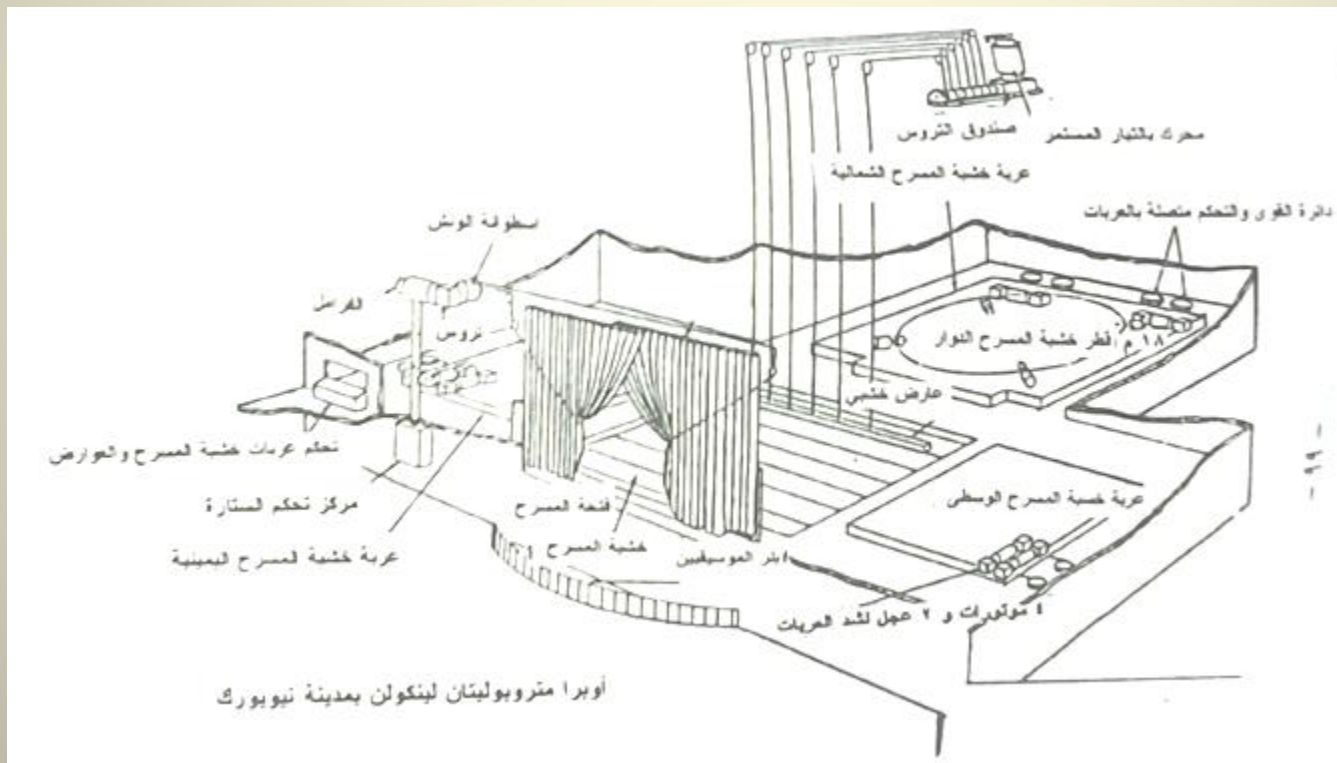 محرك بالتيار المستمر
صندوق التروس
عربة خشبة المسرح الشمالية
دائرة القوى والتحكم متصلة بالعربات
اسطوانة الونش
الفرامل
تروس
١٨ م قطر خشبة المسرح الدوار
عارض خشبي
تحكم عربات خشبة المسرح والعوارض
مركز تحكم الستارة
عربة خشبة المسرح اليمينية
فتحة المسرح
خشبة المسرح
الموسيقيين
عربة خسبة المسرح الوسطى
٤ موتورات و ٢ عجل لشد العربات
أوبرا متروبوليتان لينكولن بمدينة نيويورك
- ٩٩ -